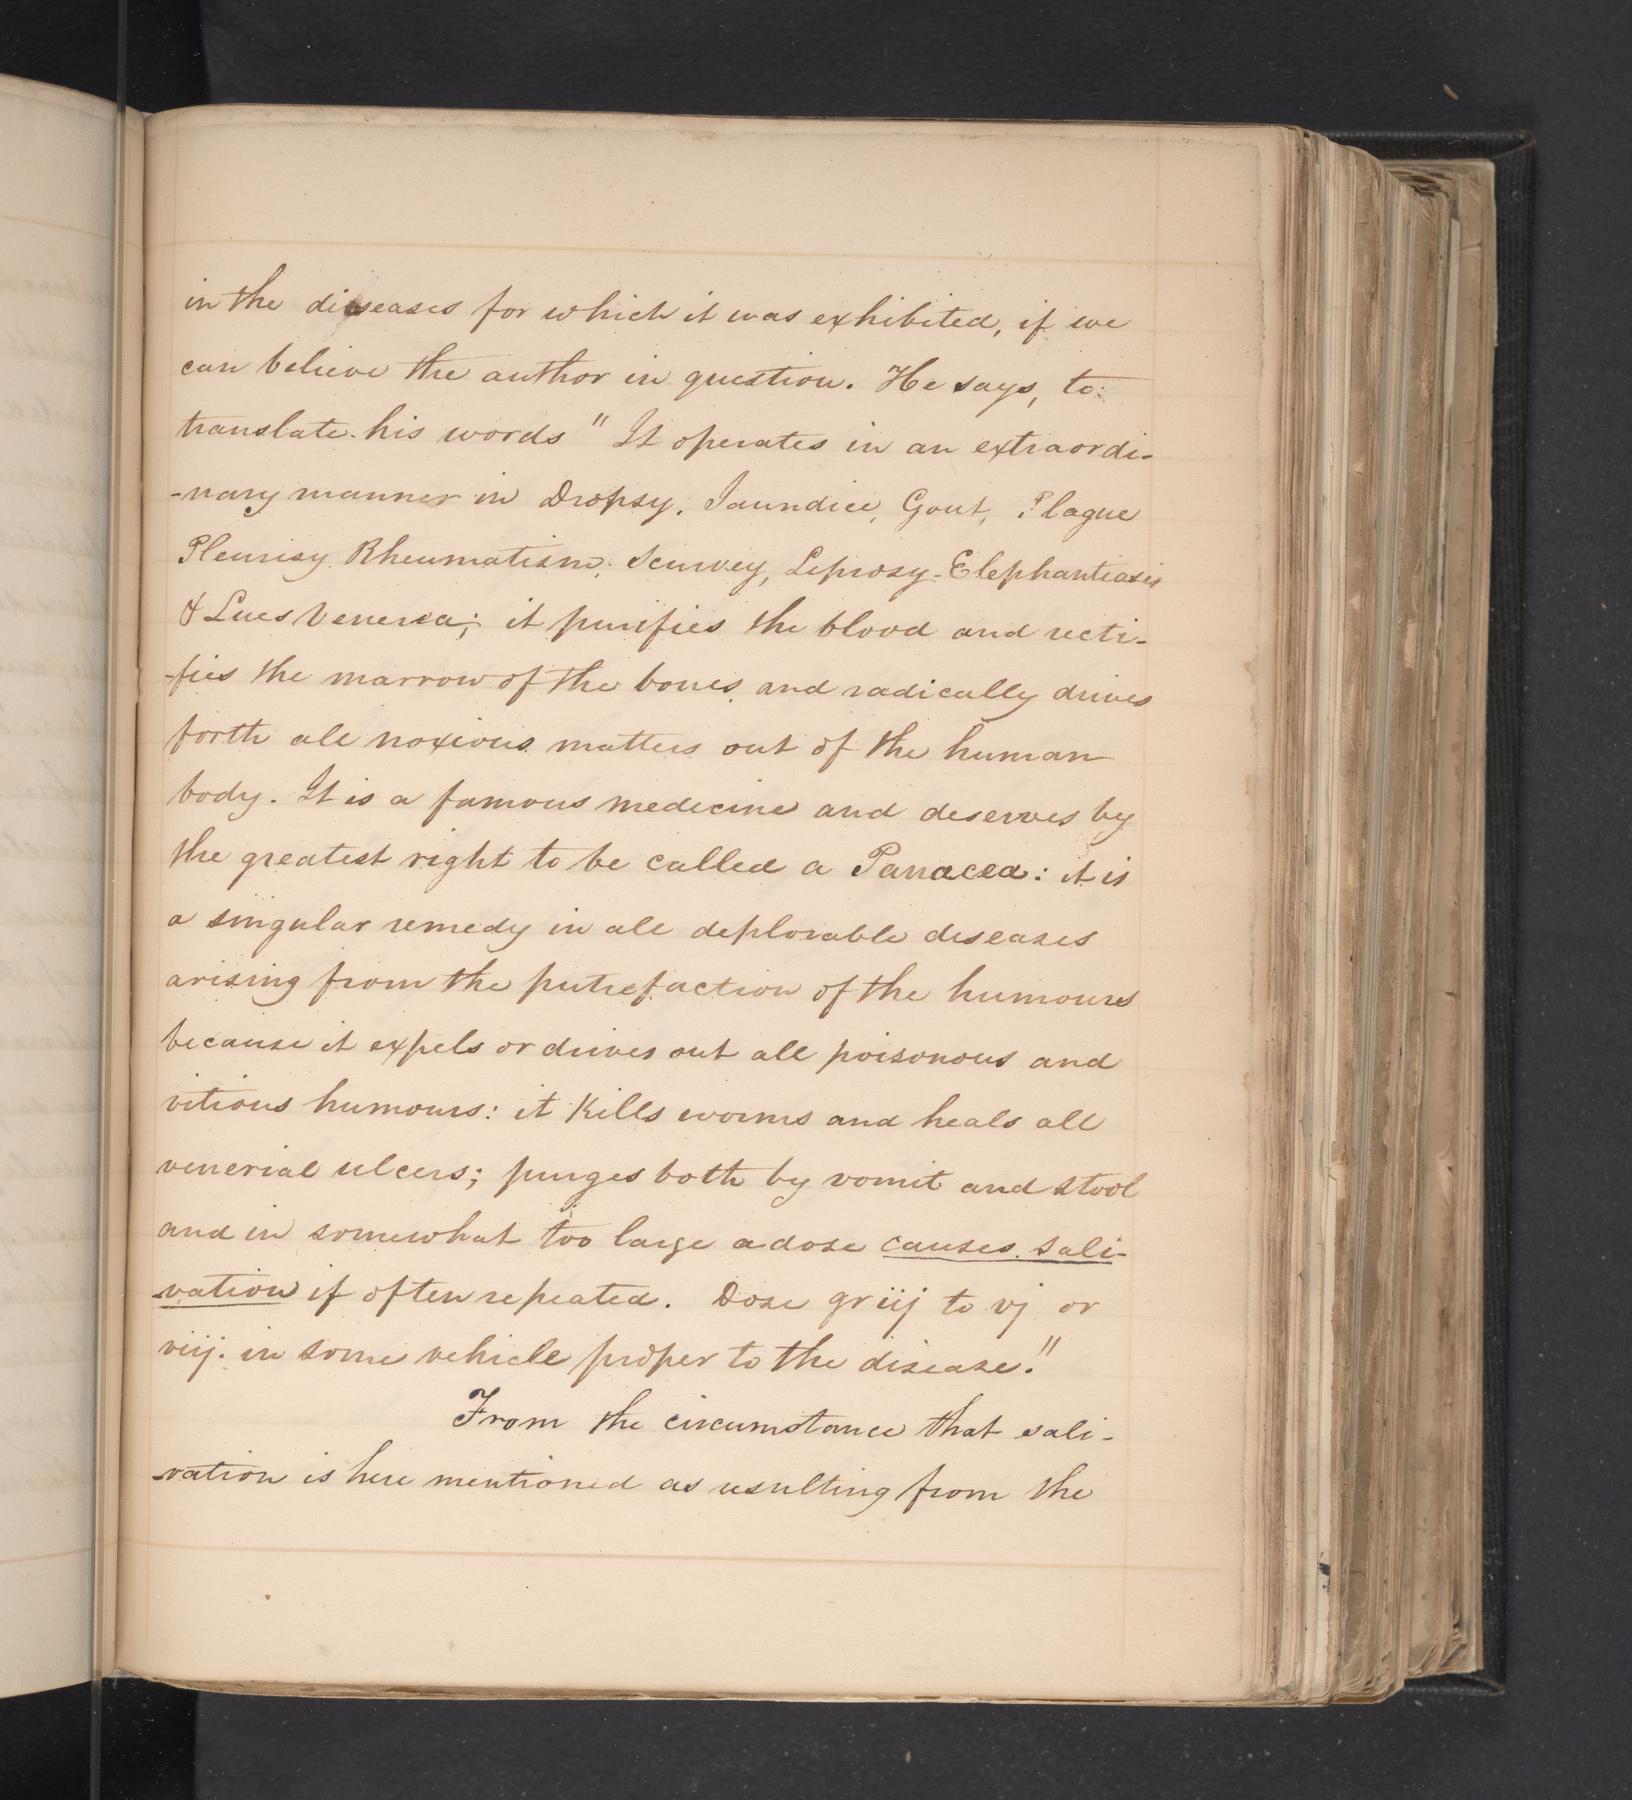 in the diseases for which it was exhibited, if we
can believe the author in question. He says, to
translate his words "It operates in an extraordi-
-nary manner in Dropsy, Jaundice, Gout, Plague
Pleurisy Rheumatism, Scurvey, Leprosy-Elephantiasis
& Lues Venerea; it purifies the blood and recti-
-fies the marrow of the bones and radically drives
forth all noxious matters out of the human
body. It is a famous medecine and deserves by
the greatest right to be called a Panacea: it is
a singular remedy in all deplorable diseases
arising from the putrefaction of the humours
because it expels or drives out all poisonous and
vitious humours: it kills worms and heals all
venerial ulcers; purges both by vomit and stool
and in somewhat too large a dose causes sali-
-vation if often repeated. Dose gr iij to vj or
viij. in some vehicle proper to the disease."
From the circumstance that sali-
-vation is here mentioned as resulting from the